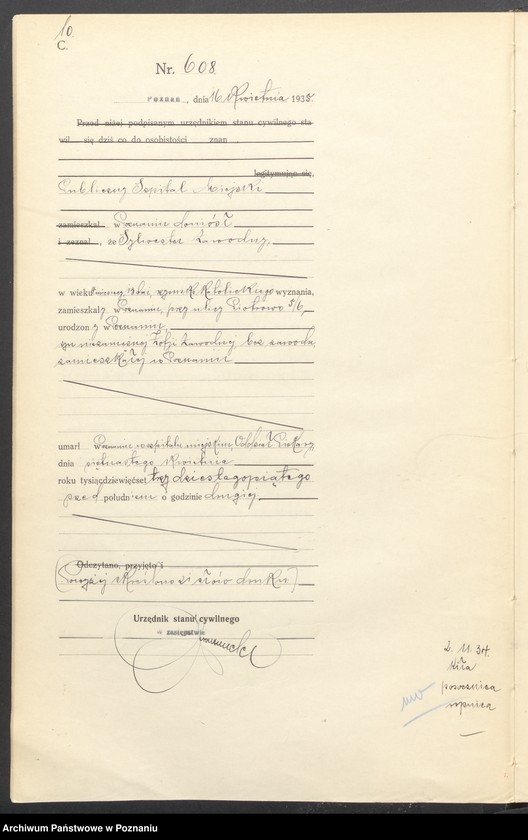 10.
C.
Nr. 608
Poznań, dnia 16 Kwietnia 1935.
Przed niżej podpisanym urzędnikiem stanu cywilnego sta
wił się dziś co do osobistości znan
legitymując się
Publiczny Szpital Miejski
zamieszkał , w Poznaniu doniósł
i zeznał , że Sylwester Zawodny,
w wieku miesięcy, 19 dni, rzymsko katolickiego wyznania,
zamieszkały w Poznaniu, przy ulicy Piotrowo 5/6,
urodzony w Poznaniu,
syn niezamężnej Zofji Zawodny bez zawodu
zamieszkałej w Poznaniu
umarł Poznaniu w szpitalu miejskim, Oddział
dnia piętnastego Kwietnia
roku tysiącdziewięćset trzydziestegopiątego
przed południem o godzinie drugiej
Odczytano, przyjęto i
(Powyżej skreślono słów druku)
Urzędnik stanu cywilnego
w zastępstwie
2. 11. 34
kiła
posocznica
ropnica
Archiwum Państwowe w Poznaniu